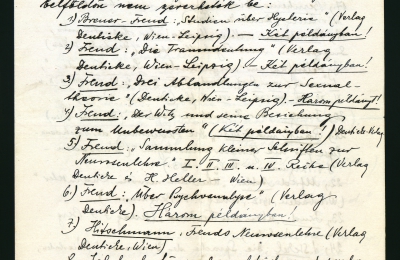 belföldön nem szerezhetők be:
1) Breuer-Freud: „Studien über Hysterie" (Verlag
Deuticke, Wien-Leipzig). — Két példányban!
2) Freud: „Die Traumdeutung" (Verlag
Deuticke, Wien-Leipzig) — Két példányban!
3) Freud: „Drei Abhandlungen zur Sexual-
theorie" (Deuticke, Wien-Leipzig) - Három példányt!
4) Freud: „Der Witz und seine Beziehung
zum Unbewussten" (Két példányban!) Deuticke Verlag
5) Freud: „Sammlung kleiner Schriften zur
Neurosenlehre" I. II. III. u. IV. Reihe (Verlag
Deuticke & H. Heller — Wien)
6.) Freud: „Über Psychoanalyse" (Verlag
Deuticke). Három példányban!
7) Hitschmann, Freuds Neurosenlehre (Verlag
Deuticke, Wien)